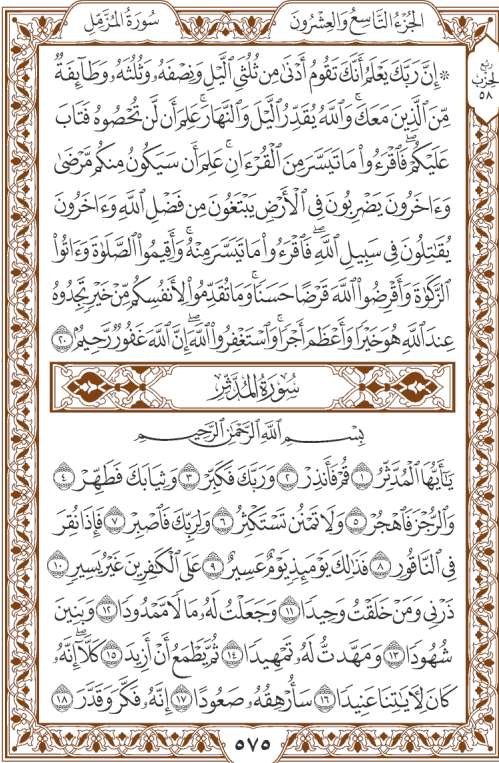 سُورَةُ المُزَّمِّل
الجُزْءُ التَّاسِعُ وَالعِشْرُونَ
رُبع
الحِزْب
٥٨
۞ إِنَّ رَبَّكَ يَعْلَمُ أَنَّكَ تَقُومُ أَدْنَىٰ مِن ثُلُثَىِ ٱلَّيْلِ وَنِصْفَهُۥ وَثُلُثَهُۥ وَطَآئِفَةٌ
مِّنَ ٱلَّذِينَ مَعَكَۚ وَٱللَّهُ يُقَدِّرُ ٱلَّيْلَ وَٱلنَّهَارَۚ عَلِمَ أَن لَّن تُحْصُوهُ فَتَابَ
عَلَيْكُمْۖ فَٱقْرَءُوا۟ مَا تَيَسَّرَ مِنَ ٱلْقُرْءَانِۚ عَلِمَ أَن سَيَكُونُ مِنكُم مَّرْضَىٰ
وَءَاخَرُونَ يَضْرِبُونَ فِى ٱلْأَرْضِ يَبْتَغُونَ مِن فَضْلِ ٱللَّهِ وَءَاخَرُونَ
يُقَٰتِلُونَ فِى سَبِيلِ ٱللَّهِۖ فَٱقْرَءُوا۟ مَا تَيَسَّرَ مِنْهُۚ وَأَقِيمُوا۟ ٱلصَّلَوٰةَ وَءَاتُوا۟
ٱلزَّكَوٰةَ وَأَقْرِضُوا۟ ٱللَّهَ قَرْضًا حَسَنًاۚ وَمَا تُقَدِّمُوا۟ لِأَنفُسِكُم مِّنْ خَيْرٍ تَجِدُوهُ
عِندَ ٱللَّهِ هُوَ خَيْرًا وَأَعْظَمَ أَجْرًاۚ وَٱسْتَغْفِرُوا۟ ٱللَّهَۖ إِنَّ ٱللَّهَ غَفُورٌ رَّحِيمٌۢ ٢٠
سُورَةُ المُدَّثِّر
بِسْمِ ٱللَّهِ ٱلرَّحْمَٰنِ ٱلرَّحِيمِ
يَٰٓأَيُّهَا ٱلْمُدَّثِّرُ ١ قُمْ فَأَنذِرْ ٢ وَرَبَّكَ فَكَبِّرْ ٣ وَثِيَابَكَ فَطَهِّرْ ٤
وَٱلرُّجْزَ فَٱهْجُرْ ٥ وَلَا تَمْنُن تَسْتَكْثِرُ ٦ وَلِرَبِّكَ فَٱصْبِرْ ٧ فَإِذَا نُقِرَ
فِى ٱلنَّاقُورِ ٨ فَذَٰلِكَ يَوْمَئِذٍ يَوْمٌ عَسِيرٌ ٩ عَلَى ٱلْكَٰفِرِينَ غَيْرُ يَسِيرٍ ١٠
ذَرْنِى وَمَنْ خَلَقْتُ وَحِيدًا ١١ وَجَعَلْتُ لَهُۥ مَالًا مَّمْدُودًا ١٢ وَبَنِينَ
شُهُودًا ١٣ وَمَهَّدتُّ لَهُۥ تَمْهِيدًا ١٤ ثُمَّ يَطْمَعُ أَنْ أَزِيدَ ١٥ كَلَّآۖ إِنَّهُۥ
كَانَ لِءَايَٰتِنَا عَنِيدًا ١٦ سَأُرْهِقُهُۥ صَعُودًا ١٧ إِنَّهُۥ فَكَّرَ وَقَدَّرَ ١٨
٥٧٥